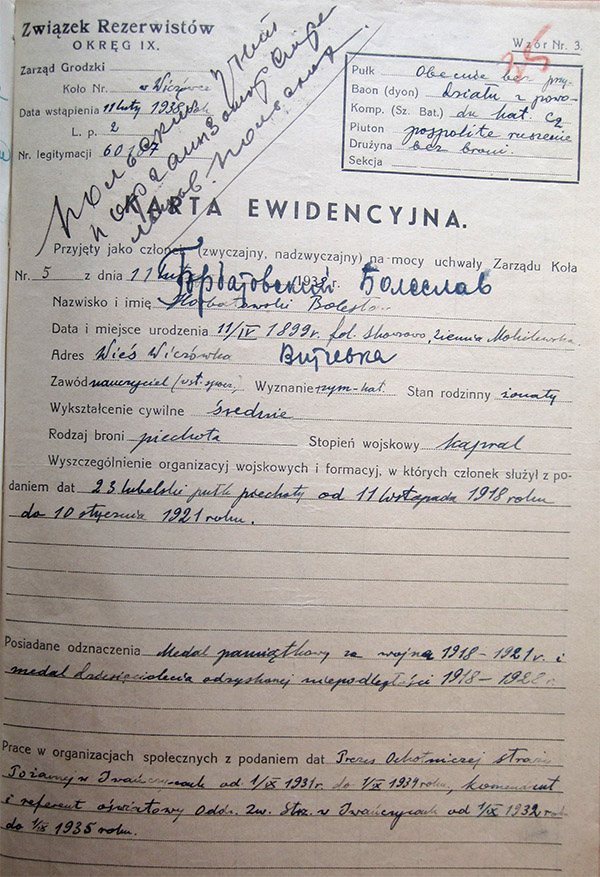 Związek Rezerwistów
OKRĘG IX.
Zarząd Grodzki
Koło Nr. w Wiczówce
Data wstąpienia 11 luty 1938 rok
L. p. 2
Nr. legitymacji 60137
Wzór Nr. 3.
25
Pułk Obecnie bez przy-
Baon (dyon) działu z powo-
Komp. (Sz. Bat.) du kat. C2
Pluton pospolite ruszenie
Drużyna bez broni.
Sekcja
польский
KARTA EWIDENCYJNA.
Przyjęty jako członek (zwyczajny, nadzwyczajny) na mocy uchwały Zarządu Koła
Nr. 5 z dnia 11 1938 r.
Горбатовский Болеслав
Nazwisko i imię Horbatowski Bolesław
Data i miejsce urodzenia 11/IV 1899 r. fol. ziemia Mohilewska.
Adres Wieś Wiczówka Вичевка
Zawód nauczyciel Wyznanie rzym-kat. Stan rodzinny żonaty
Wykształcenie cywilne średnie
Rodzaj broni piechota Stopień wojskowy kapral
Wyszczególnienie organizacyj wojskowych i formacyj, w których członek służył z po-
daniem dat 23 lubelski pułk piechoty od 11 listopada 1918 roku
do 10 stycznia 1921 roku.
Posiadane odznaczenia Medal pamiątkowy za wojnę 1918-1921 r. i
medal dziesięciolecia odzyskanej niepodległości 1918-1928 r.
Prace w organizacjach społecznych z podaniem dat Prezes Ochotniczej straży
Pożarnej w Iwańczycach od 1/IX 1931 r. do 1/IX 1934 roku, komendant
i referent oświatowy Oddz. Zw. Strz. w Iwańczycach od 1/IX 1932 rok
do 1/IX 1935 roku.